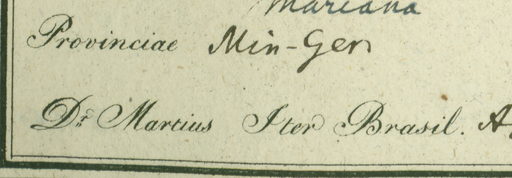 Mariana
Provinciae Min-Gen
Dr. Martius Iter Brasil. A